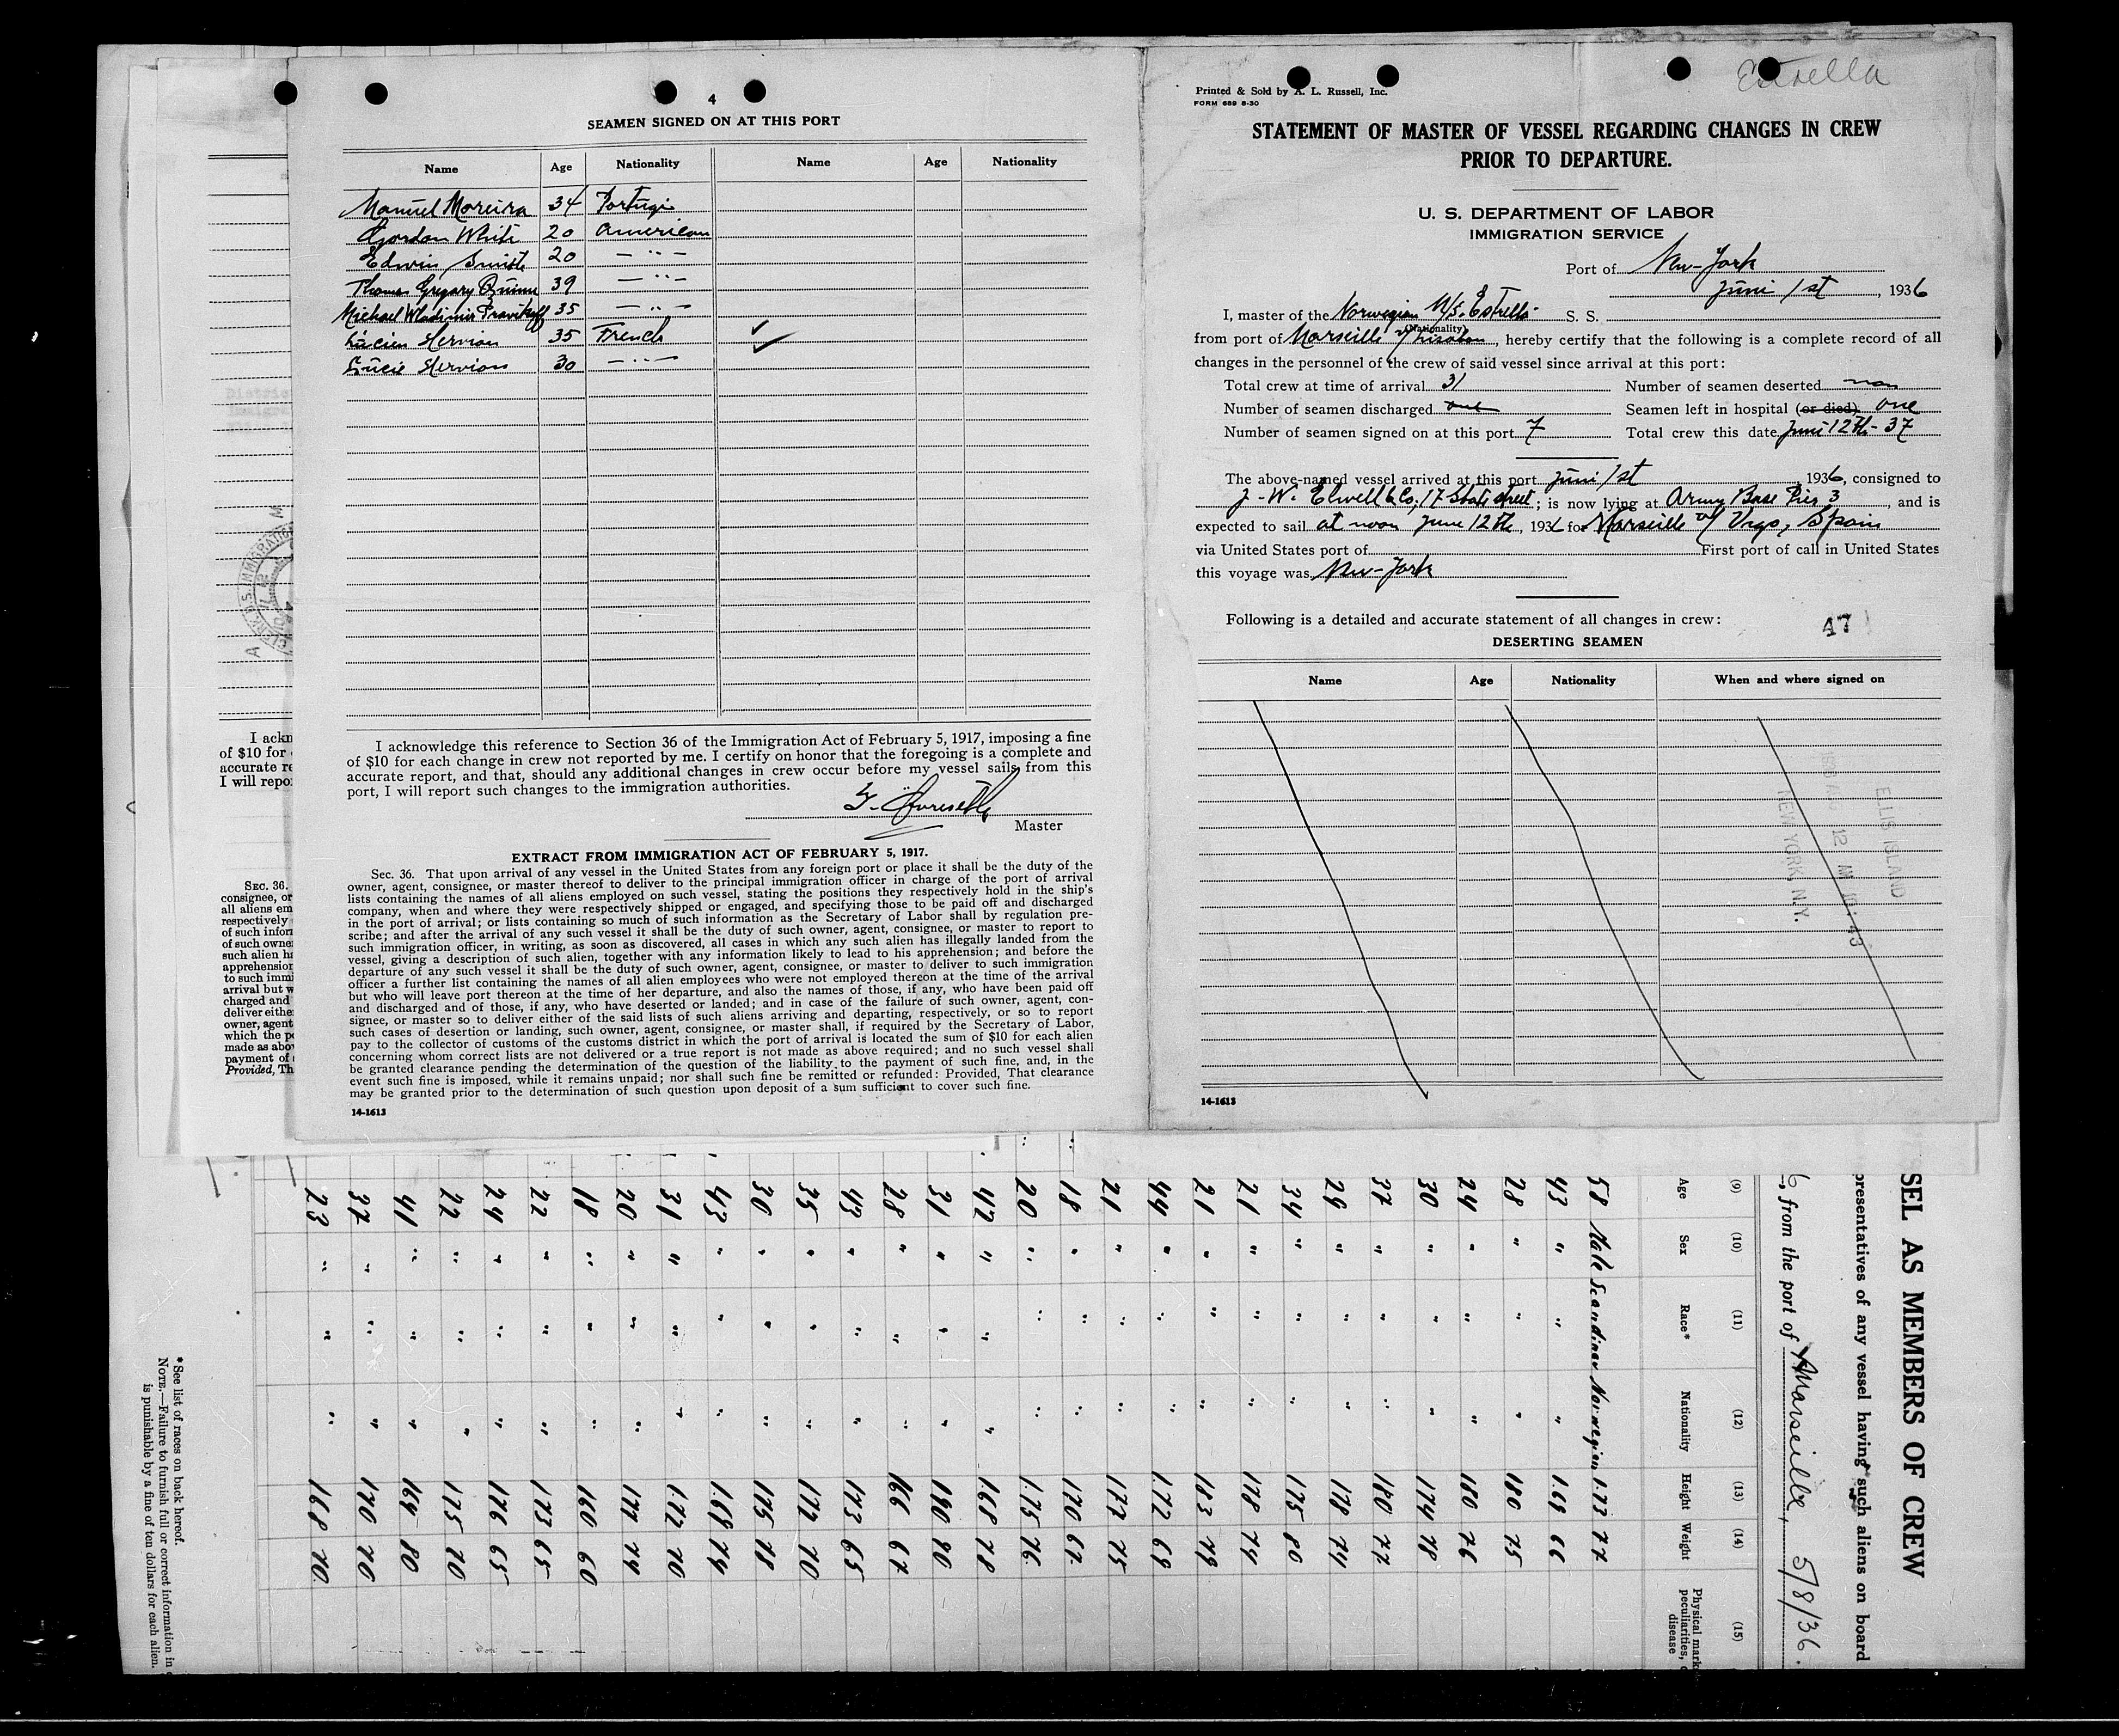 4
SEAMEN SIGNED ON AT THIS PORT
Name Age Nationality Name Age Nationality
Manuel Moreira 34 Portugi
Gordon White 20 American
Edwin 20 — " —
Thomas Gregory Quinn 39 — " —
Michael Wladimir 35 — " —
Lucien Hervion 35 French ✓
Lucie Hervion 30 — " —
I acknowledge this reference to Section 36 of the Immigration Act of February 5, 1917, imposing a fine
of $10 for each change in crew not reported by me. I certify on honor that the foregoing is a complete and
accurate report, and that, should any additional changes in crew occur before my vessel sails from this
port, I will report such changes to the immigration authorities.
Master
EXTRACT FROM IMMIGRATION ACT OF FEBRUARY 5, 1917.
Sec. 36. That upon arrival of any vessel in the United States from any foreign port or place it shall be the duty of the
owner, agent, consignee, or master thereof to deliver to the principal immigration officer in charge of the port of arrival
lists containing the names of all aliens employed on such vessel, stating the positions they respectively hold in the ship's
company, when and where they were respectively shipped or engaged, and specifying those to be paid off and discharged
in the port of arrival; or lists containing so much of such information as the Secretary of Labor shall by regulation pre-
scribe; and after the arrival of any such vessel it shall be the duty of such owner, agent, consignee, or master to report to
such immigration officer, in writing, as soon as discovered, all cases in which any such alien has illegally landed from the
vessel, giving a description of such alien, together with any information likely to lead to his apprehension; and before the
departure of any such vessel it shall be the duty of such owner, agent, consignee, or master to deliver to such immigration
officer a further list containing the names of all alien employees who were not employed thereon at the time of the arrival
but who will leave port thereon at the time of her departure, and also the names of those, if any, who have been paid off
and discharged and of those, if any, who have deserted or landed; and in case of the failure of such owner, agent, con-
signee, or master so to deliver either of the said lists of such aliens arriving and departing, respectively, or so to report
such cases of desertion or landing, such owner, agent, consignee, or master shall, if required by the Secretary of Labor,
pay to the collector of customs of the customs district in which the port of arrival is located the sum of $10 for each alien
concerning whom correct lists are not delivered or a true report is not made as above required; and no such vessel shall
be granted clearance pending the determination of the question of the liability to the payment of such fine, and, in the
event such fine is imposed, while it remains unpaid; nor shall such fine be remitted or refunded: Provided, That clearance
may be granted prior to the determination of such question upon deposit of a sum sufficient to cover such fine.
14-1613
Estrella
Printed & Sold by A. L. Russell, Inc.
FORM 689 8-30
STATEMENT OF MASTER OF VESSEL REGARDING CHANGES IN CREW
PRIOR TO DEPARTURE.
U. S. DEPARTMENT OF LABOR
IMMIGRATION SERVICE
Port of New-York
Juni 1st, 1936
I, master of the Norwegian M/S. "Estrella" S. S.
(Nationality)
from port of Marseille o/ Lissabon, hereby certify that the following is a complete record of all
changes in the personnel of the crew of said vessel since arrival at this port:
Total crew at time of arrival 31 Number of seamen deserted non
Number of seamen discharged one Seamen left in hospital (or died) one
Number of seamen signed on at this port 7 Total crew this date Juni 12th - 37
The above-named vessel arrived at this port Juni 1st, 1936, consigned to
J. W. Elwell & Co, 17 State street; is now lying at Army Base Pier 3, and is
expected to sail at noon June 12th, 1936 for Marseille o/ Vigo, Spain
via United States port of First port of call in United States
this voyage was New-York
Following is a detailed and accurate statement of all changes in crew:
47
DESERTING SEAMEN
Name Age Nationality When and where signed on
ELLIS ISLAND
12 AM 10:43
NEW YORK, N.Y.
14-1613
I ackn
of $10 for
accurate re
I will repo
SEC. 36.
consignee, or
all aliens em
respectively
of such infor
of such owne
such alien ha
apprehension
to such immi
arrival but w
charged and
deliver eithe
owner, agent
which the po
made as abov
payment of
Provided, Th
SEL AS MEMBERS OF CREW
presentatives of any vessel having such aliens on board
6, from the port of Marseille, 5/8/36.
(9) (10) (11) (12) (13) (14) (15)
Age Sex Race* Nationality Height Weight Physical mark
peculiarities, o
disease
58 Male Scandinav. Norwegian 1.73 77
43 " " " 1.69 66
28 " " " 180 75
24 " " " 180 76
30 " " " 174 78
37 " " " 180 77
29 " " " 178 74
34 " " " 175 80
21 " " " 178 74
21 " " " 183 79
44 " " " 1.72 69
21 " " " 177 75
18 " " " 170 67
20 " " " 1.75 76
42 " " " 1.68 78
31 " " " 190 90
28 " " " 166 67
43 " " " 173 65
35 " " " 172 70
30 " " " 175 78
43 " " " 1.69 74
31 " " " 172 70
20 " " " 177 74
18 " " " 160 60
22 " " " 173 65
24 " " " 176 65
22 " " " 175 70
41 " " " 164 80
37 " " " 170 70
23 " " " 168 70
*See list of races on back hereof.
NOTE.—Failure to furnish full or correct information in
is punishable by a fine of ten dollars for each alien.